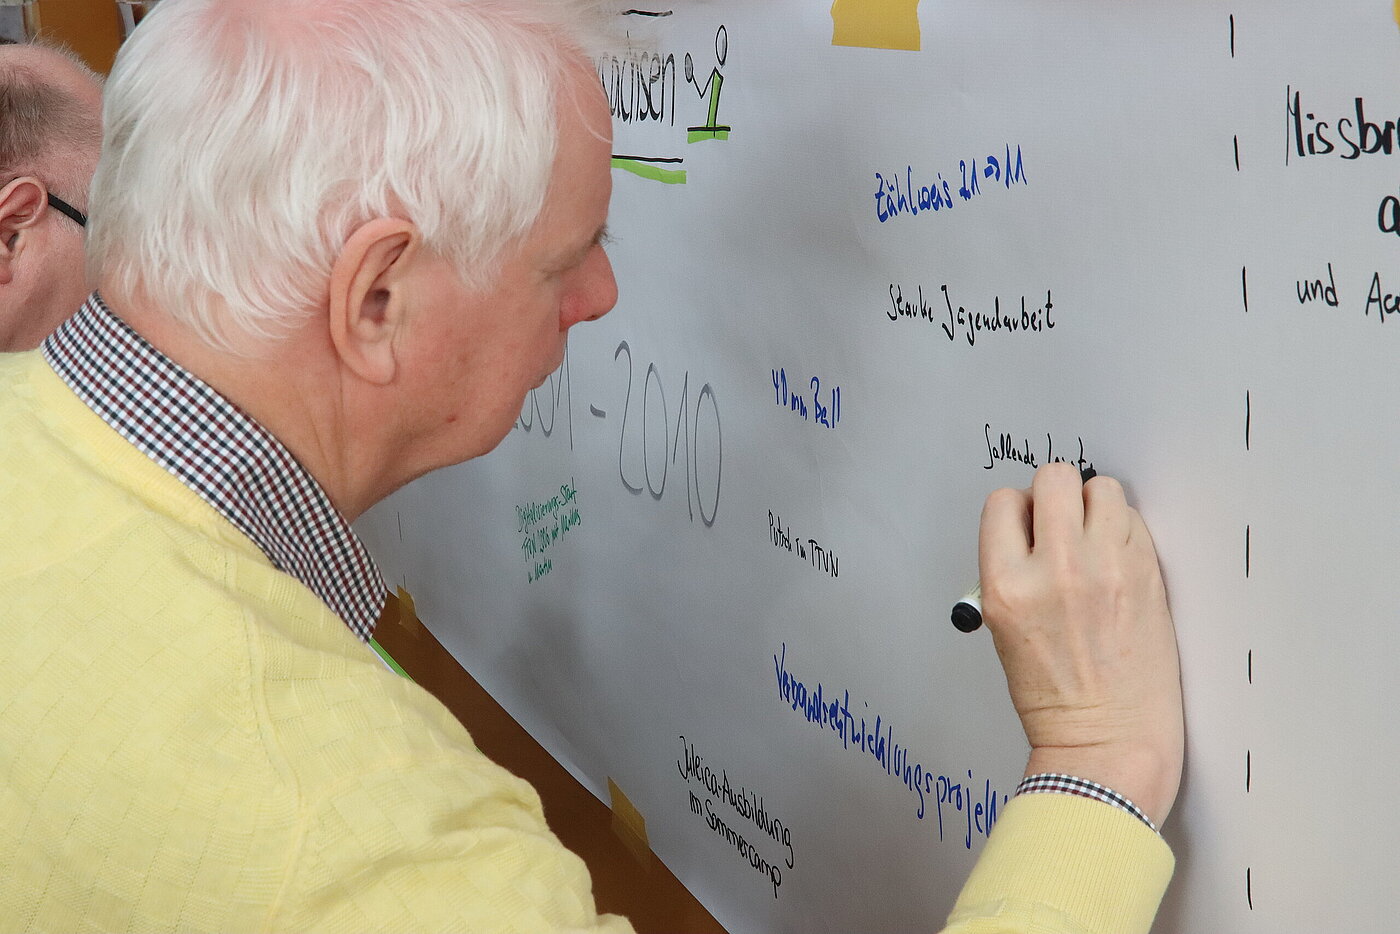 achsen
Zählweis 21→11
Starke Jugendarbeit
2001-2010
40 mm Ball
fallende
Digitalisierungs-Start
TTVN 2006 mit
u. Martin
Putsch im TTVN
Verbandsentwicklungsprojekt
Juleica-Ausbildung
im Sommercamp
Missbr
a
und Acc